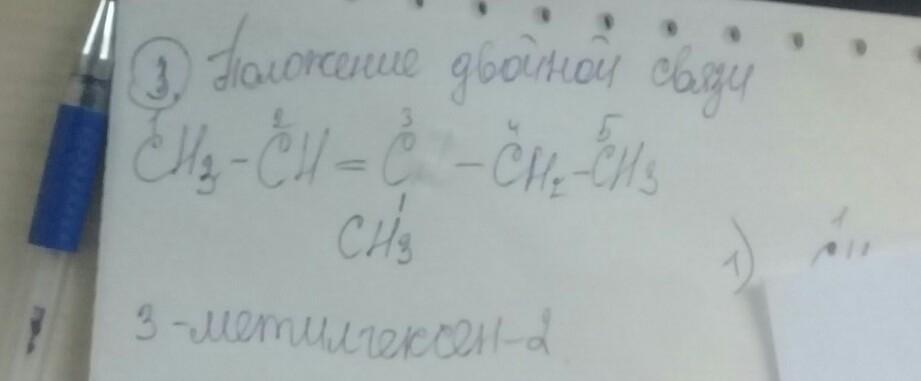 3. Положение двойной связи
1 2 3 4 5
CH3-CH=C-CH2-CH3
CH3
1)
3-метилгексен-2